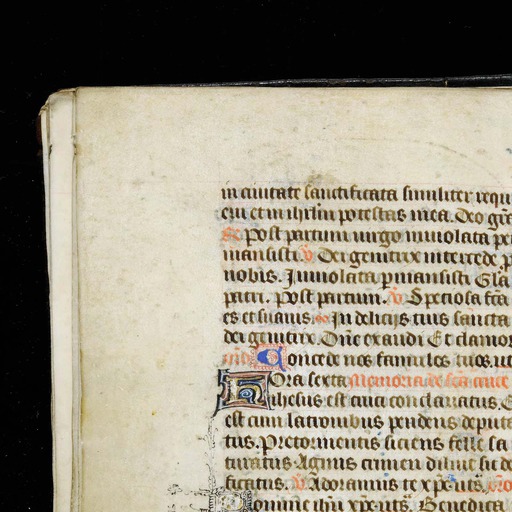 in ciuitate sanctificata similiter requi
eui et in ihrlm potestas mea. Deo grãs
R Post partum uirgo inuiolata per
mansisti. V Dei genitrix intercede p
nobis. Inuiolata pmansisti Gla
patri. Post partum. V Speciosa fca
es et suauis. In delicijs tuis sancta
dei genitrix. Dne exaudi Et clamor
Concede nos famulos tuos. ut
Hora sexta Memoria de sca cruce
ihesus est cruci conclauatus. E
est cum latronibus pendens deputa
tus. Pre tormentis siciens felle sa
turatus. Agnus crimen diluit sic de
ficatus. V Adoramus te xpe. uts.
Domine ihu xpe. uts. Benedica